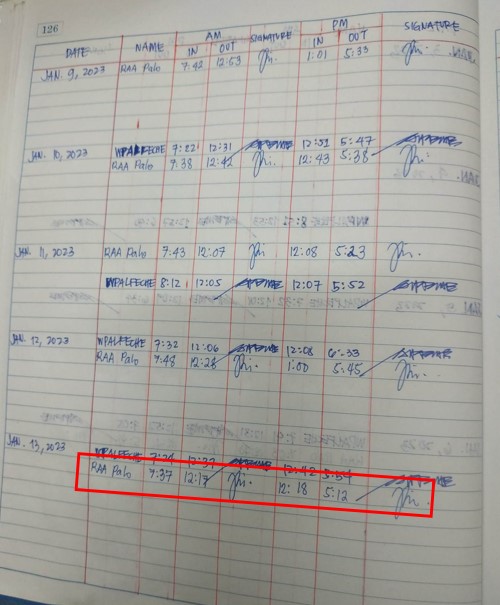 126
AM PM
DATE NAME IN OUT SIGNATURE IN OUT SIGNATURE
JAN. 9, 2023 RAA Palo 7:42 12:53 1:01 5:33
JAN. 10, 2023 WPALFECHE 7:22 12:31 12:51 5:47
RAA Palo 7:38 12:42 12:43 5:38
JAN. 11, 2023 RAA Palo 7:43 12:07 12:08 5:23
WPALFECHE 8:12 12:05 12:07 5:52
JAN. 12, 2023 WPALFECHE 7:32 12:06 12:08 6:33
RAA Palo 7:48 12:28 1:00 5:45
JAN. 13, 2023 WPALFECHE 12:37 12:42
RAA Palo 7:37 12:17 12:18 5:12